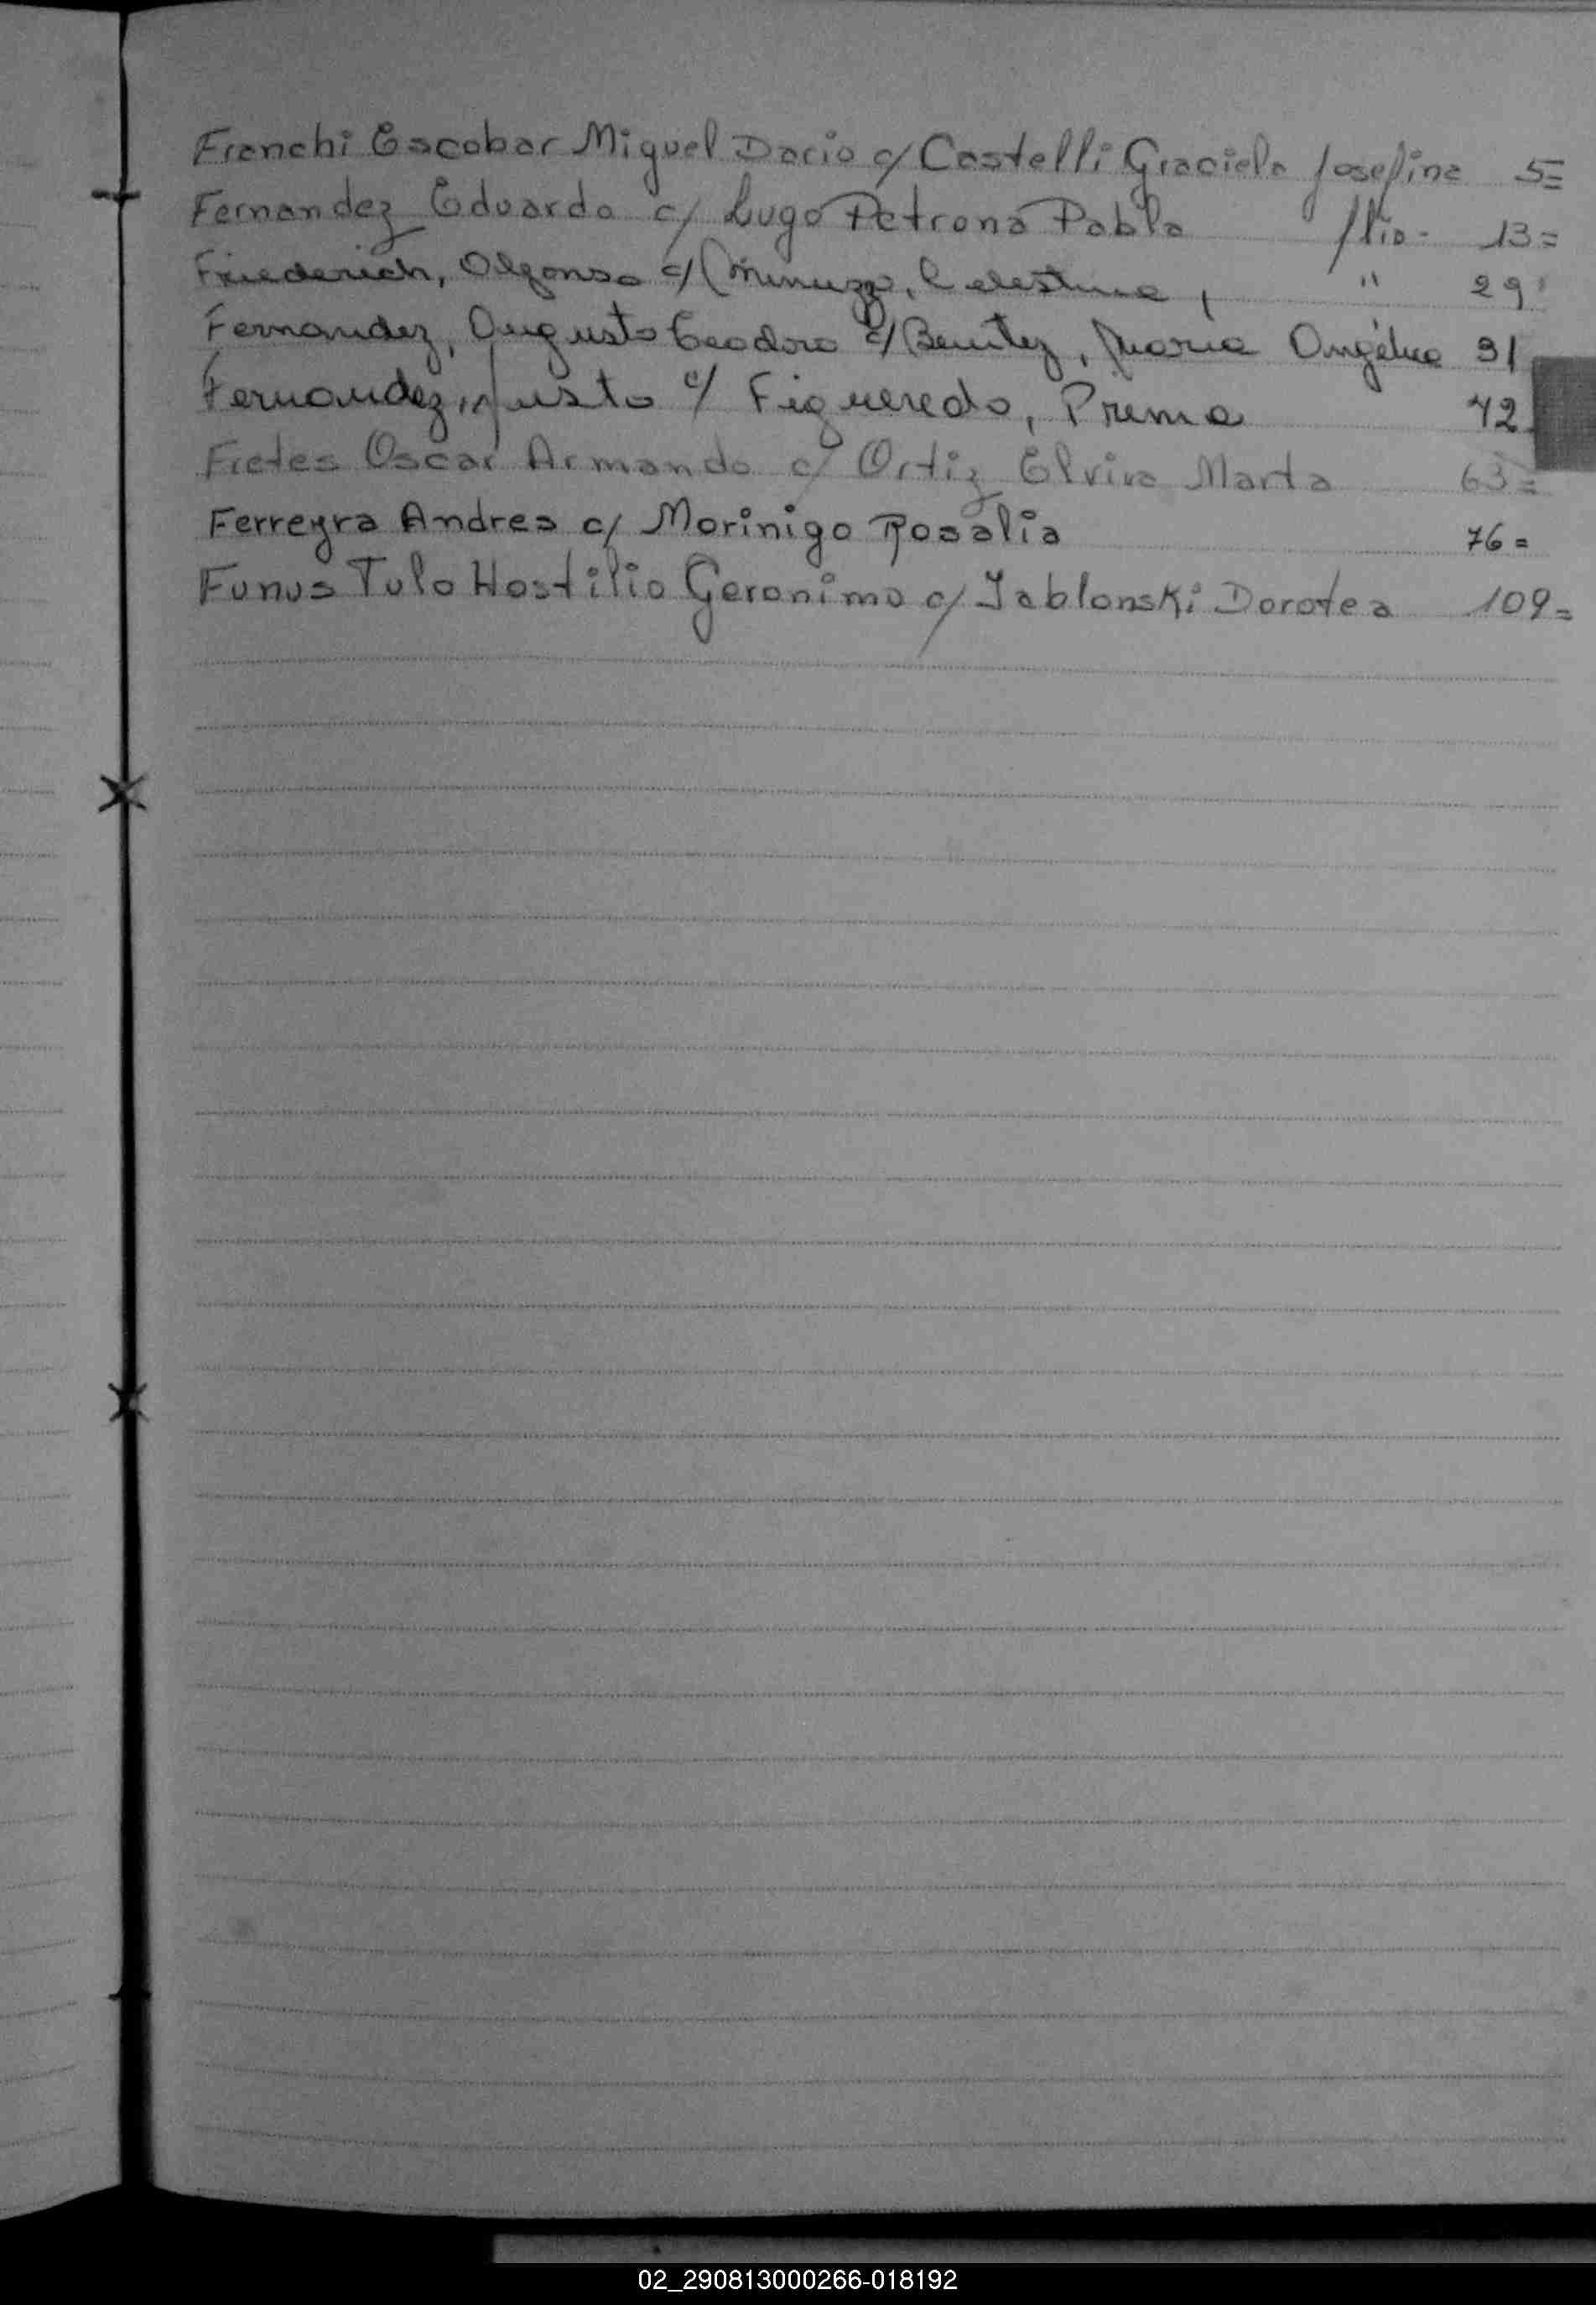 Franchi Escobar Miguel Dario c/ Castelli Graciela Josefina 5=
Fernandez Eduardo c/ Lugo Petrona Pabla flio- 13=
Friederich, Alfonso c/ Minuzzo, Celestina, " 29
Fernandez, Augusto Teodoro c/ Benitez, Maria Angélica 31
Fernandez, Justo c/ Figueredo, Prima 42
Fretes Oscar Armando c/ Ortiz Elvira Marta 63=
Ferreyra Andres c/ Morinigo Rosalia 76=
Funus Tulo Hostilio Geronimo c/ Jablonski Dorotea 109=
02_290813000266-018192